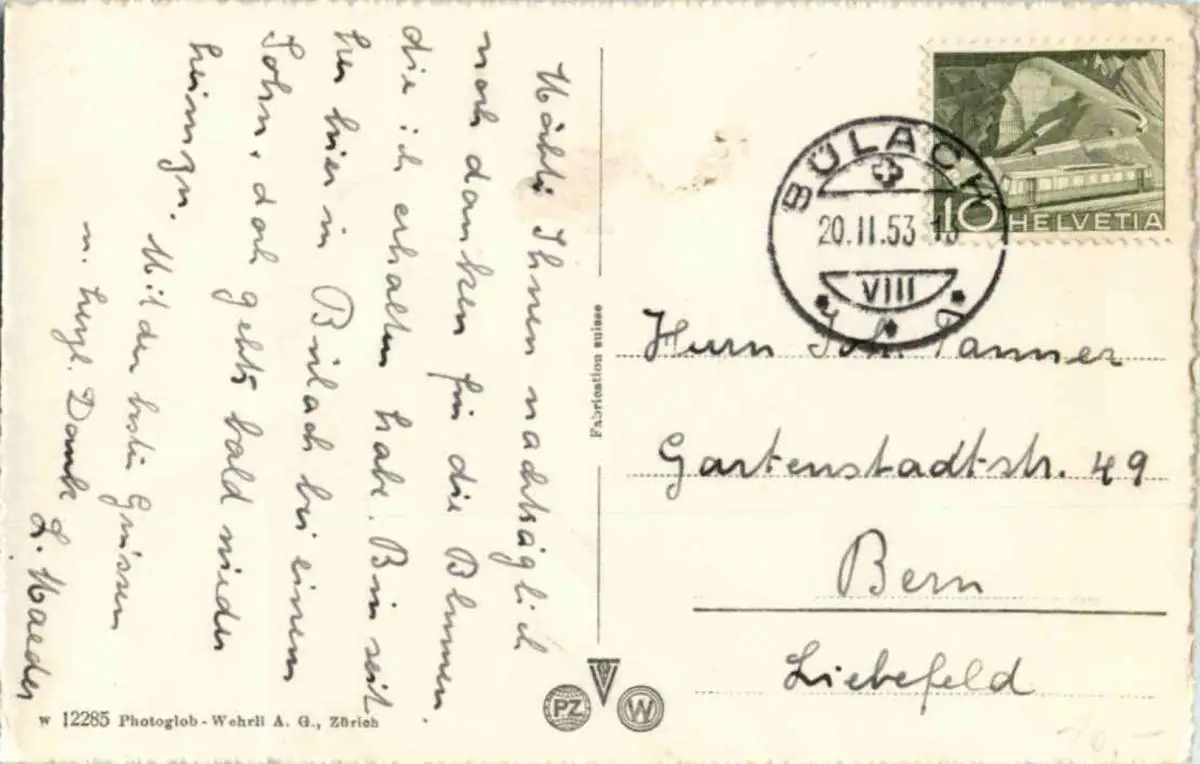 Möchte Ihnen nachträglich
noch danken für die Blumen,
die ich erhalten habe. Bin seit
her hier in Bülach bei einem
Sohn, doch geht's bald wieder
heimzu.
Mit den besten Grüssen
u. herzl. Dank
L. Maeder
w 12285 Photoglob - Wehrli A. G., Zürich
Fabrication suisse
PZ
W
BÜLACH
20.II.53
VIII
10 HELVETIA
Herrn Joh. Tanner
Gartenstadtstr. 49
Bern
Liebefeld
10.-